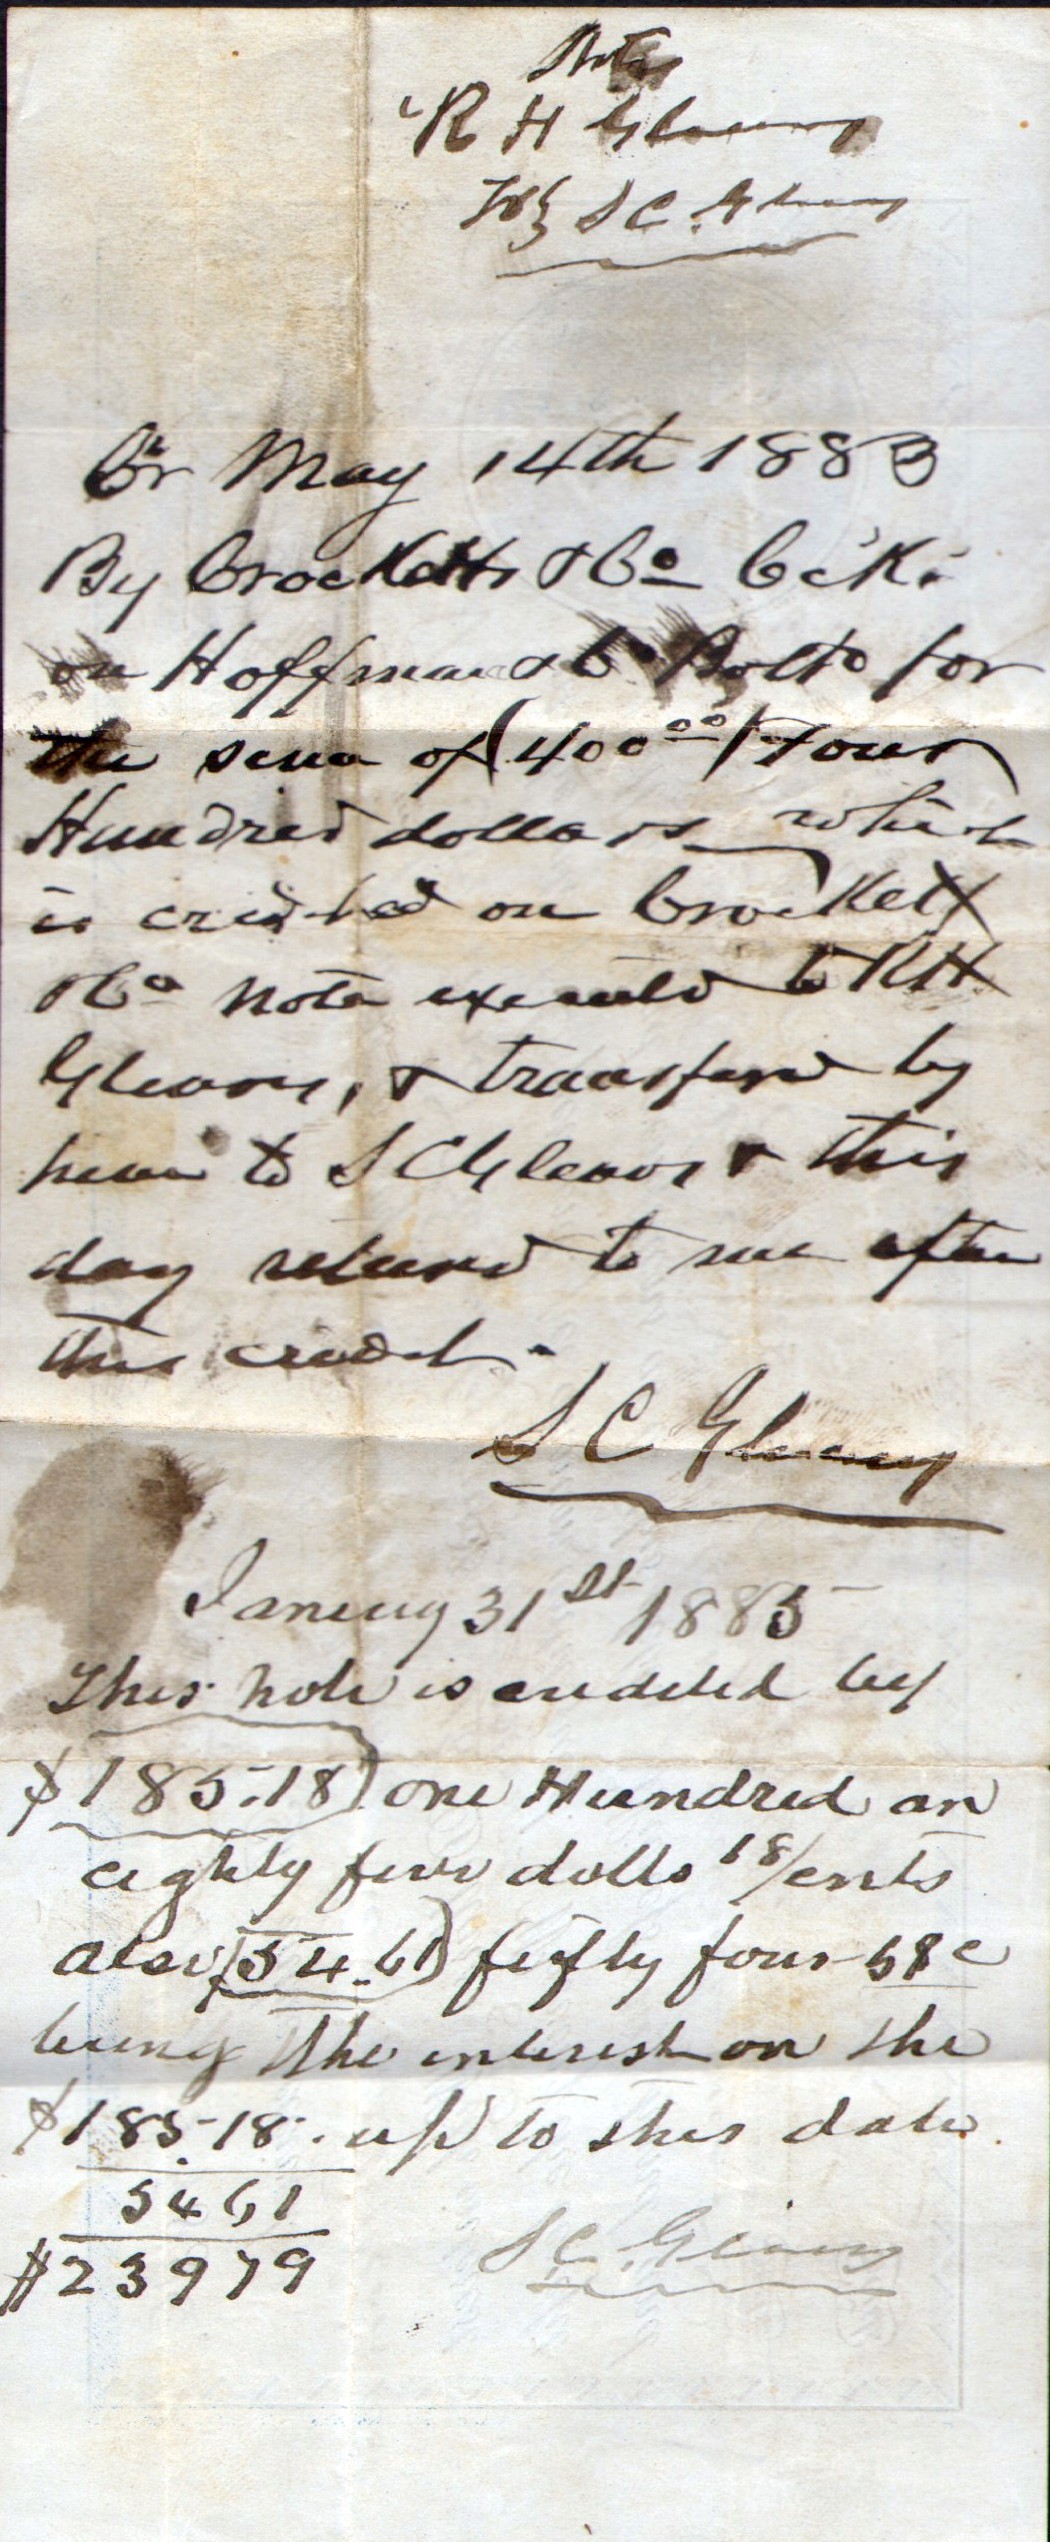 Note
R H Gleaves
To S C. Gleaves
Cr May 14th 1883
By Crocketts & Co Ck.
on Hoffman & Co Balto for
the sum of (400.00) Four
Hundred dollars which
is credited on Crockett
& Co note executed to RH
Gleaves, & transferd by
him to S C Gleaves & this
day returned to me after
this credit.
S C Gleaves
January 31st 1885
This note is credited by
$185.18) one Hundred an
eighty five dolls 18/cents
also (54.61) fifty four 61 c
being the interest on the
$185.18. up to this date.
5461
$23979
S C. Gleaves